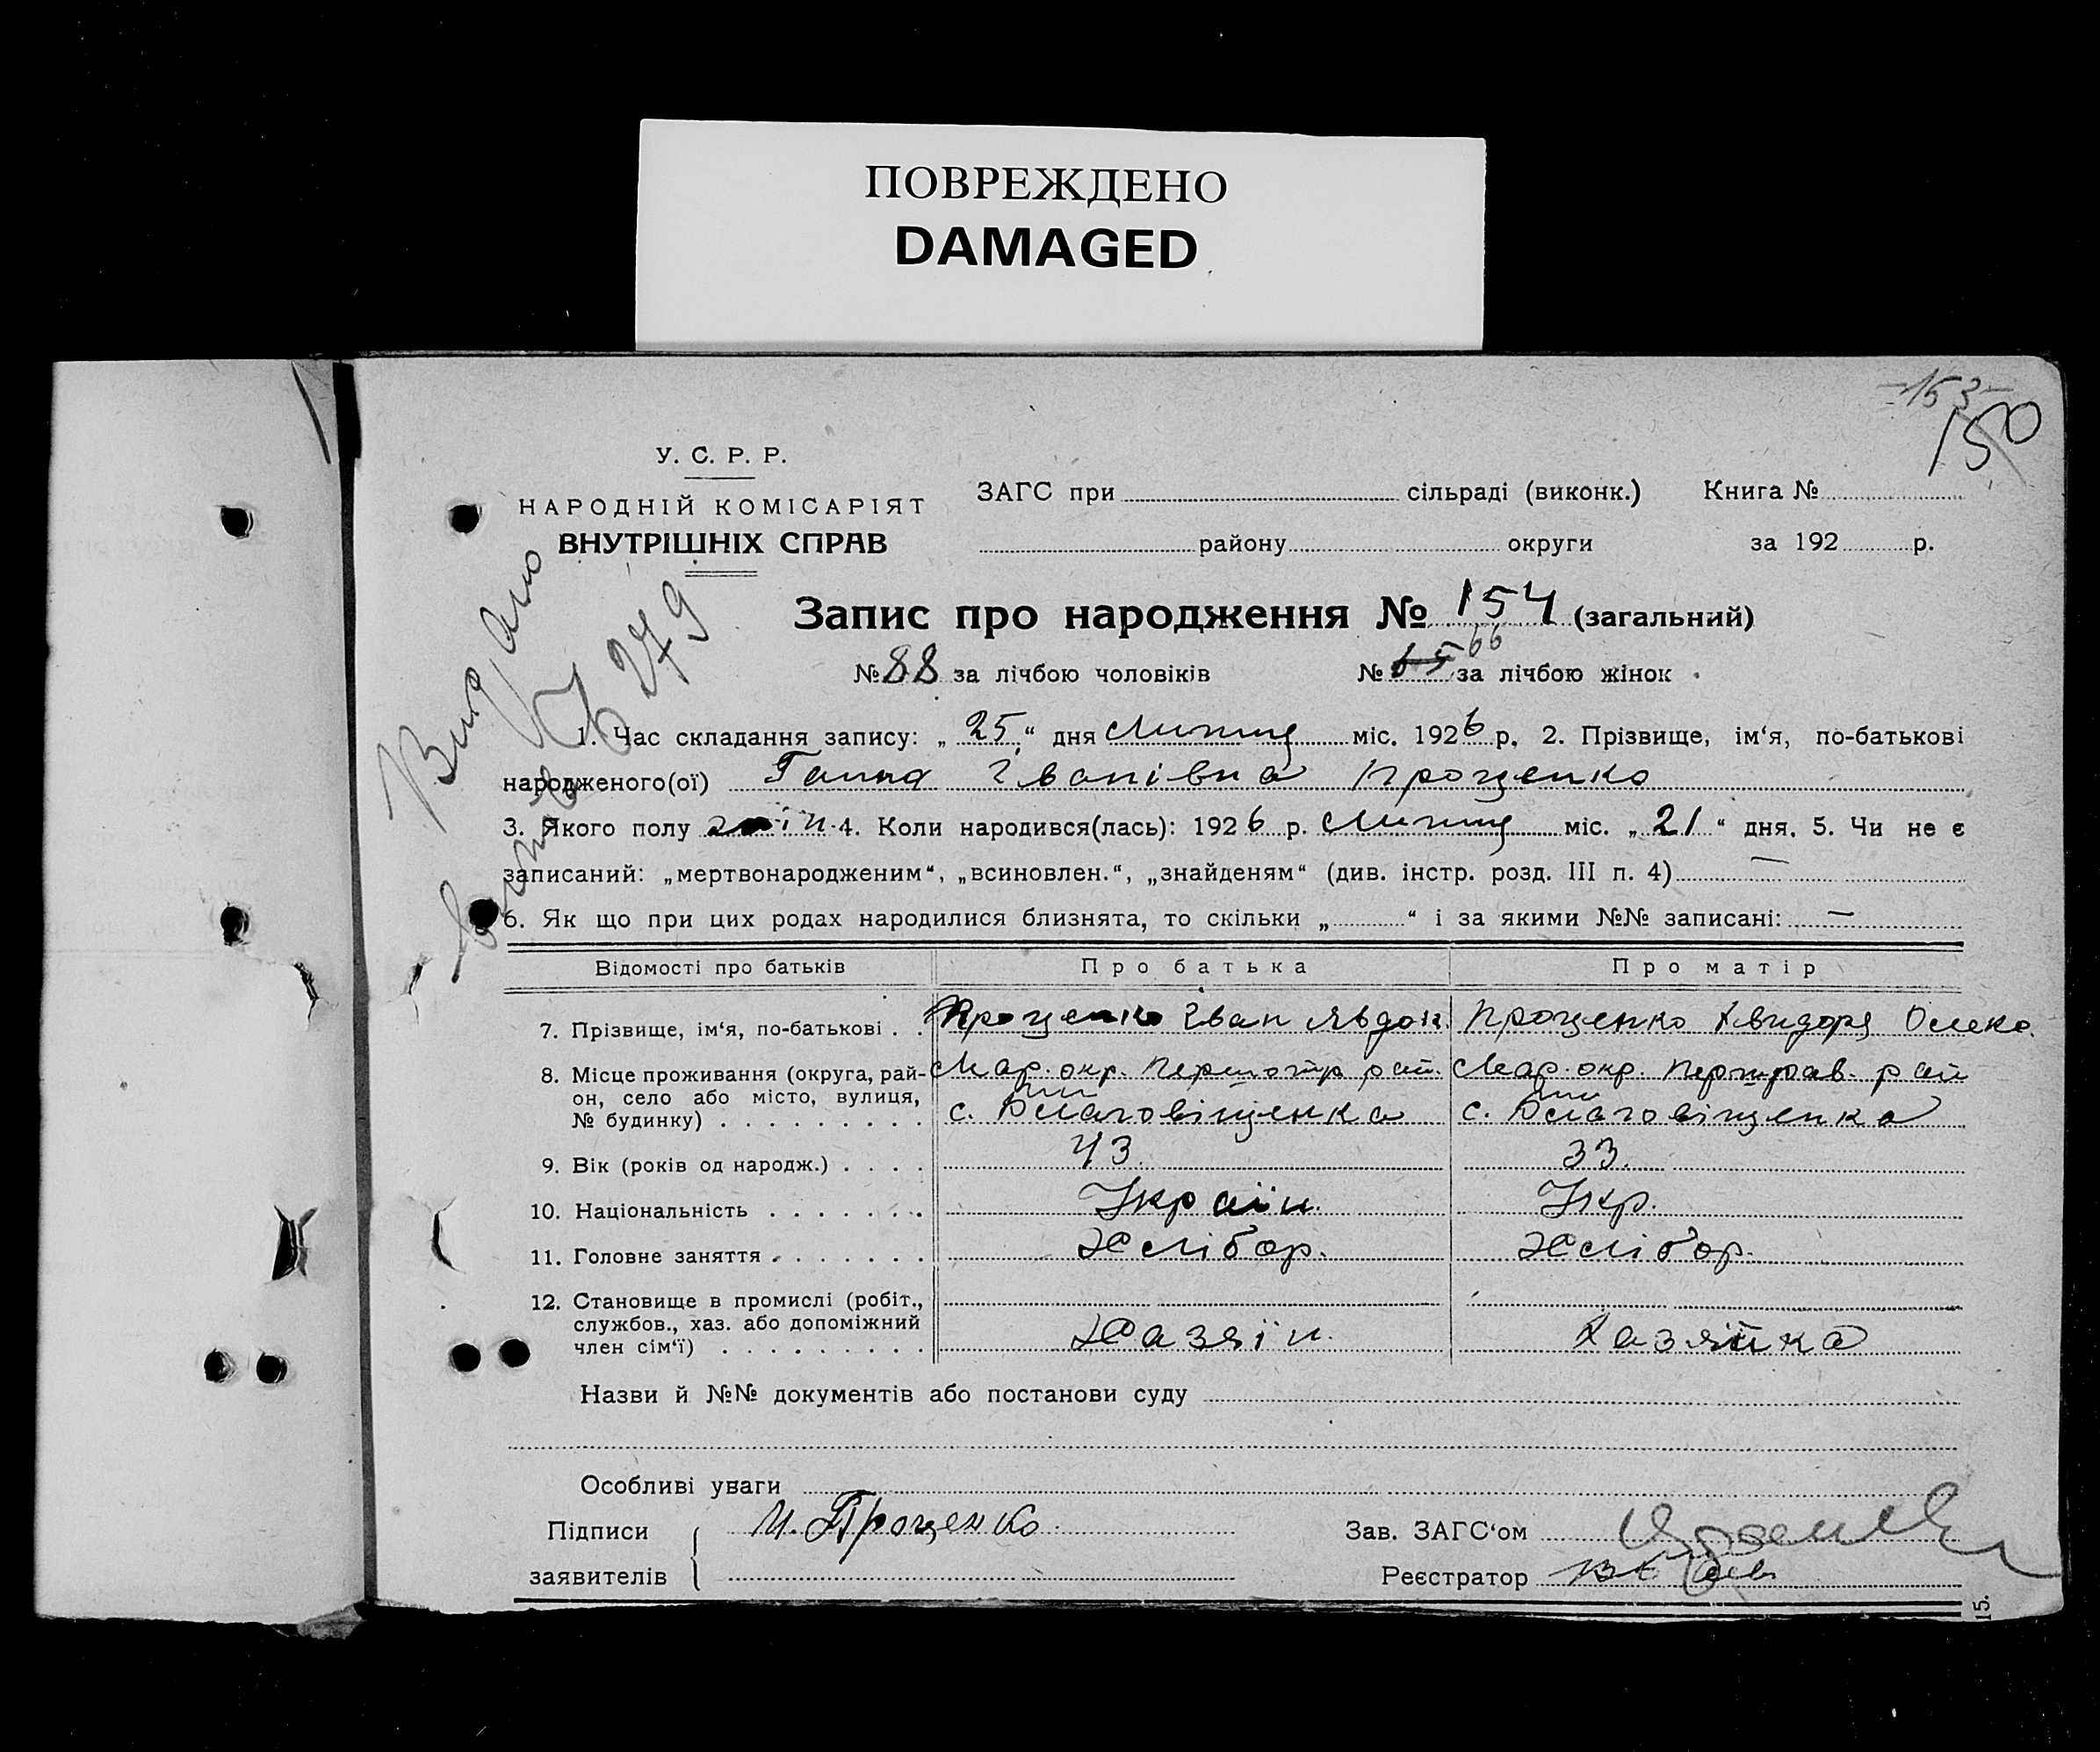 ПОВРЕЖДЕНО
DAMAGED
-153-
150
У. С. Р. Р.
НАРОДНІЙ КОМІСАРІЯТ
ВНУТРІШНІХ СПРАВ
ЗАГС при сільраді (виконк.) Книга №
району округи за 192 р.
Видано
279
Запис про народження № 154 (загальний)
№ 88 за лічбою чоловіків № 65 66 за лічбою жінок
1. Час складання запису: „ 25 “ дня Липня міс. 1926 р. 2. Прізвище, ім‘я, по-батькові
народженого(ої) Ганна Іванівна Проценко
3. Якого полу жін. 4. Коли народився(лась): 1926 р. Липня міс. „ 21 “ дня. 5. Чи не є
записаний: „мертвонародженим“, „всиновлен.“, „знайденям“ (див. інстр. розд. III п. 4) —
6. Як що при цих родах народилися близнята, то скільки „ “ і за якими №№ записані: —
Відомості про батьків Про батька Про матір
7. Прізвище, ім‘я, по-батькові . . Проценко Іван Явдок. Проценко Хвидоря Олекс.
8. Місце проживання (округа, рай- Мар. окр. Першотр рай. Мар. окр. Першрав. рай
он, село або місто, вулиця, с. Благовіщенка с. Благовіщенка
№ будинку) . . . . . . . . .
9. Вік (років од народж.) . . . . 43 33.
10. Національність . . . . . . . Україн. Укр.
11. Головне заняття . . . . . . . Хлібор. Хлібор.
12. Становище в промислі (робіт.,
службов., хаз. або допоміжний
член сім‘ї) . . . . . . . . . Хазяїн. Хазяйка
Назви й №№ документів або постанови суду
Особливі уваги
Підписи И. Проценко. Зав. ЗАГС‘ом
заявителів Реєстратор
15.